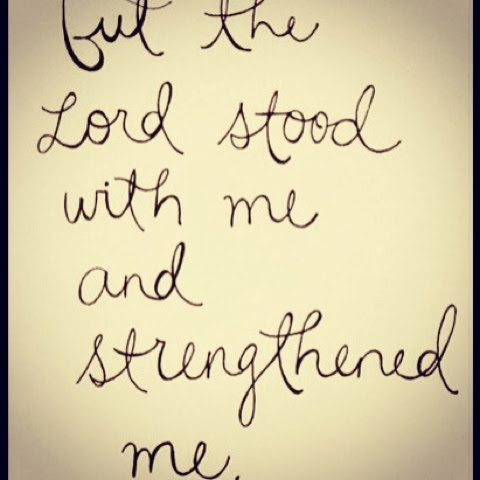 but the
Lord stood
with me
and
strengthened
me.